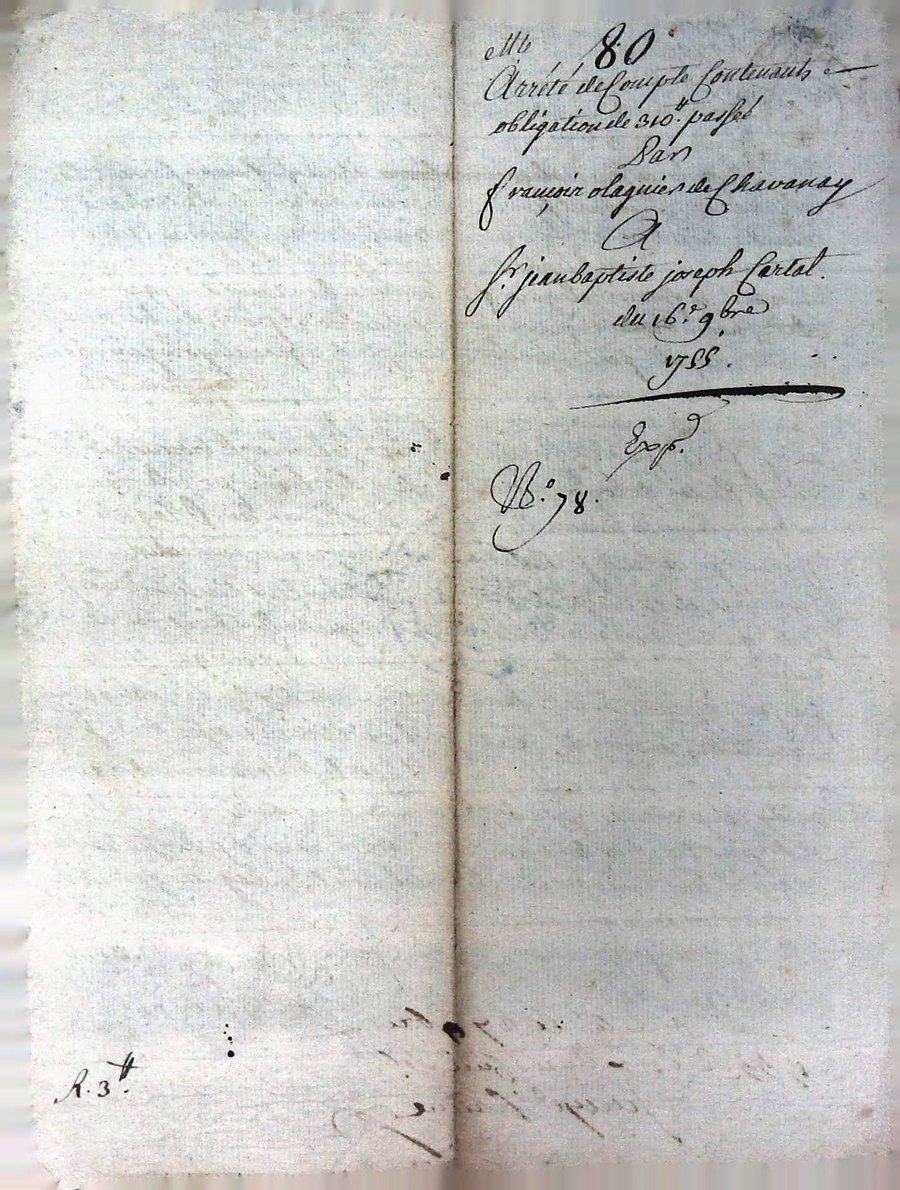 80
Arrété de Compte Contenant
obligation de 310.tt passé
Par
françois olagnier de Chavanay
A
Sr. jean baptiste joseph Cartal.
du 16.e 9.bre
1755.
Exp.d
N.o 78.
R. 3.tt